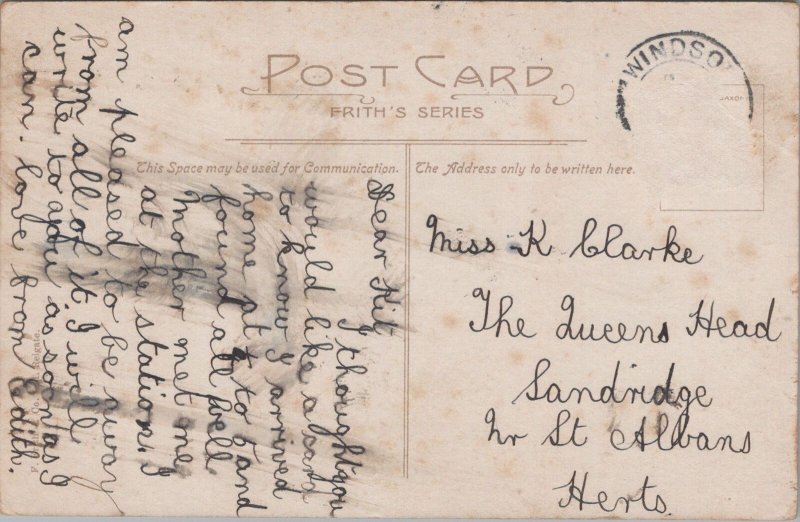 POST CARD
FRITH'S SERIES
WINDSO
This Space may be used for Communication.
The Address only to be written here.
Dear Kit
I thought you
would like a card
to know I arrived
home at ¼ to 6 and
found all well
Mother met me
at the station. I
am pleased to be away
from all of it I will
write to you as soon as I
can. love from Edith.
Miss K Clarke
The Queens Head
Sandridge
Nr St Albans
Herts.